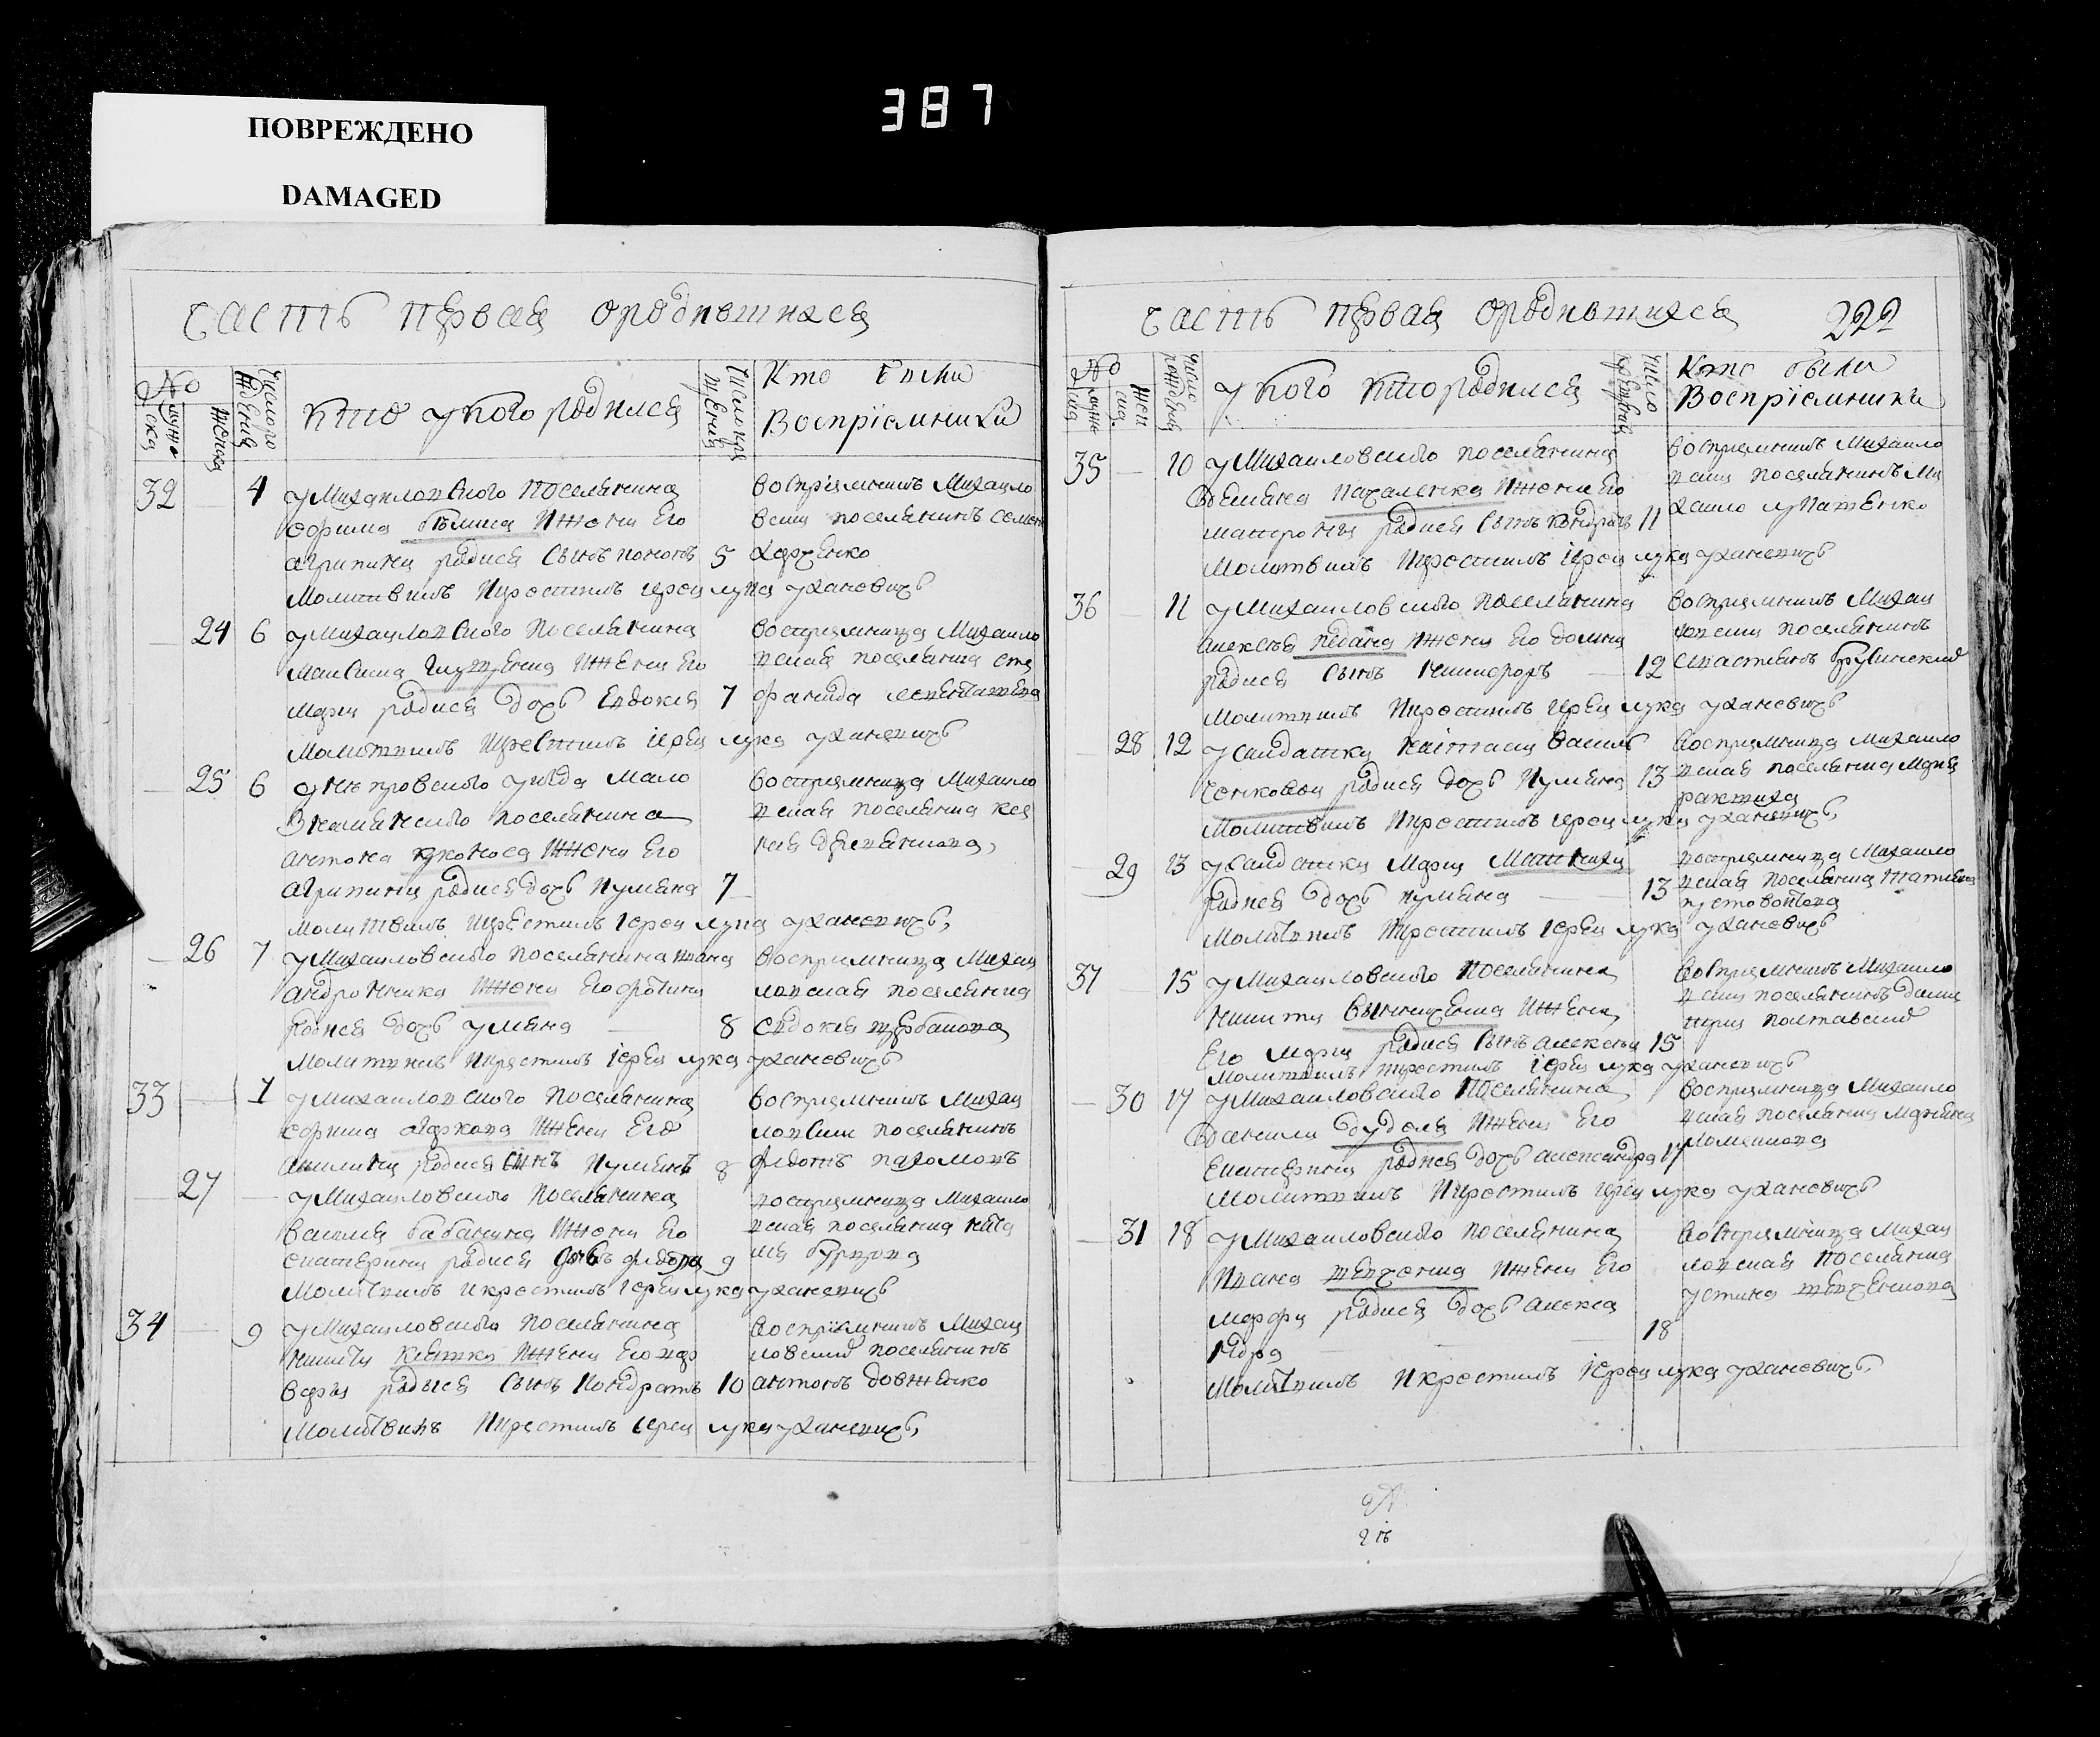 387
ПОВРЕЖДЕНО
DAMAGED
часть первая ородившихся
№
мужеска
женска
число рождения
кто укого родился
число крещения
Кто были
Восприемники
32 4 у михаиловского поселянина
ефрима беллика ижены его
агрипини родися сынъ кононъ 5
молитвилъ икрестилъ иереи лука уханевичъ
восприемникъ михаило
вски поселянинъ семен
харченко
24 6 у михаиловского поселянина
максима ижены его
марии родися дочь евдокия 7
молитвилъ икрестилъ иереи лука уханевичъ
восприемница михаило
вская поселянка сте
фанида
25 6 уднепровского уезда мало
знаменского поселянина
антона ижены его
агрипини родися дочь иулияна 7
молитвилъ икрестилъ иереи лука уханевичъ
восприемница михаило
вская поселянка ксе
ния
26 7 у михаиловского поселянина ивана
андроника ижены его фотини
родися дочь улияна 8
молитвилъ икрестилъ иереи лука уханевичъ
восприемница михаи
ловская поселянка
евдокия щербакова
33 7 у михаиловского поселянина
ефрима ижены его
акилини родися синъ иулиянъ 8
восприемникъ михаи
ловски поселянинъ
федотъ пахомовъ
27 у михаиловского поселянина
василия бабанина ижены его
екатерини родися дочь федора 9
молитвилъ икрестилъ иереи лука уханевичъ
восприемница михаило
вская поселянка ната
лия
34 9 у михаиловского поселянина
никити ижены его вар
вари родися сынъ кондратъ 10
молитвилъ икрестилъ иереи лука уханевичъ
восприемникъ михаи
ловский поселянинъ
антонъ довженко
часть первая ородившихся 222
№
мужеска
женска
число рождения
укого кто родился
число крещения
Кто были
Восприемники
35 10 у михаиловского поселянина
емиляна пахаленка ижены его
матроны родися сынъ кондратъ 11
молитвилъ икрестилъ иереи лука уханевичъ
восприемникъ михаило
вски поселянинъ ми
хаило лупатенко
36 11 у михаиловского поселянина
алексея педана ижены его домни
родися сынъ никифоръ 12
молитвилъ икрестилъ иереи лука уханевичъ
восприемникъ михаи
ловски поселянинъ
севастиянъ
28 12 усалдатки настаси василь
ченковои родися дочь иулияна 13
молитвилъ икрестилъ иереи лука уханевичъ
восприемница михаило
вская поселянка мария
29 13 усалдатки марии
родися дочь иулияна 13
молитвилъ икрестилъ иереи лука уханевичъ
восприемница михаило
вская поселянка татияна
пустовойтова
37 15 у михаиловского поселянина
никити ижены
его марии родися сынъ алексеи 15
молитвилъ икрестилъ иереи лука уханевичъ
восприемникъ михаило
вски поселянинъ дими
трии полтавский
30 17 у михаиловского поселянина
василия дуделя ижены его
екатерини родися дочь александра 17
молитвилъ икрестилъ иереи лука уханевичъ
восприемница михаило
вская поселянка мариана
31 18 у михаиловского поселянина
ивана шевченка ижены его
марфи родися дочь алекса
ндра 18
молитвилъ икрестилъ иереи лука уханевичъ
восприемница михаи
ловская поселянка
устина шевченкова